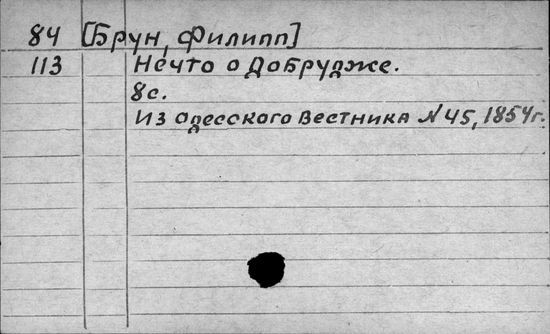 84 [Брун, Филипп]
113 Нечто о Добрудже.
8с.
Из Одесского Вестника N 45, 1854г.